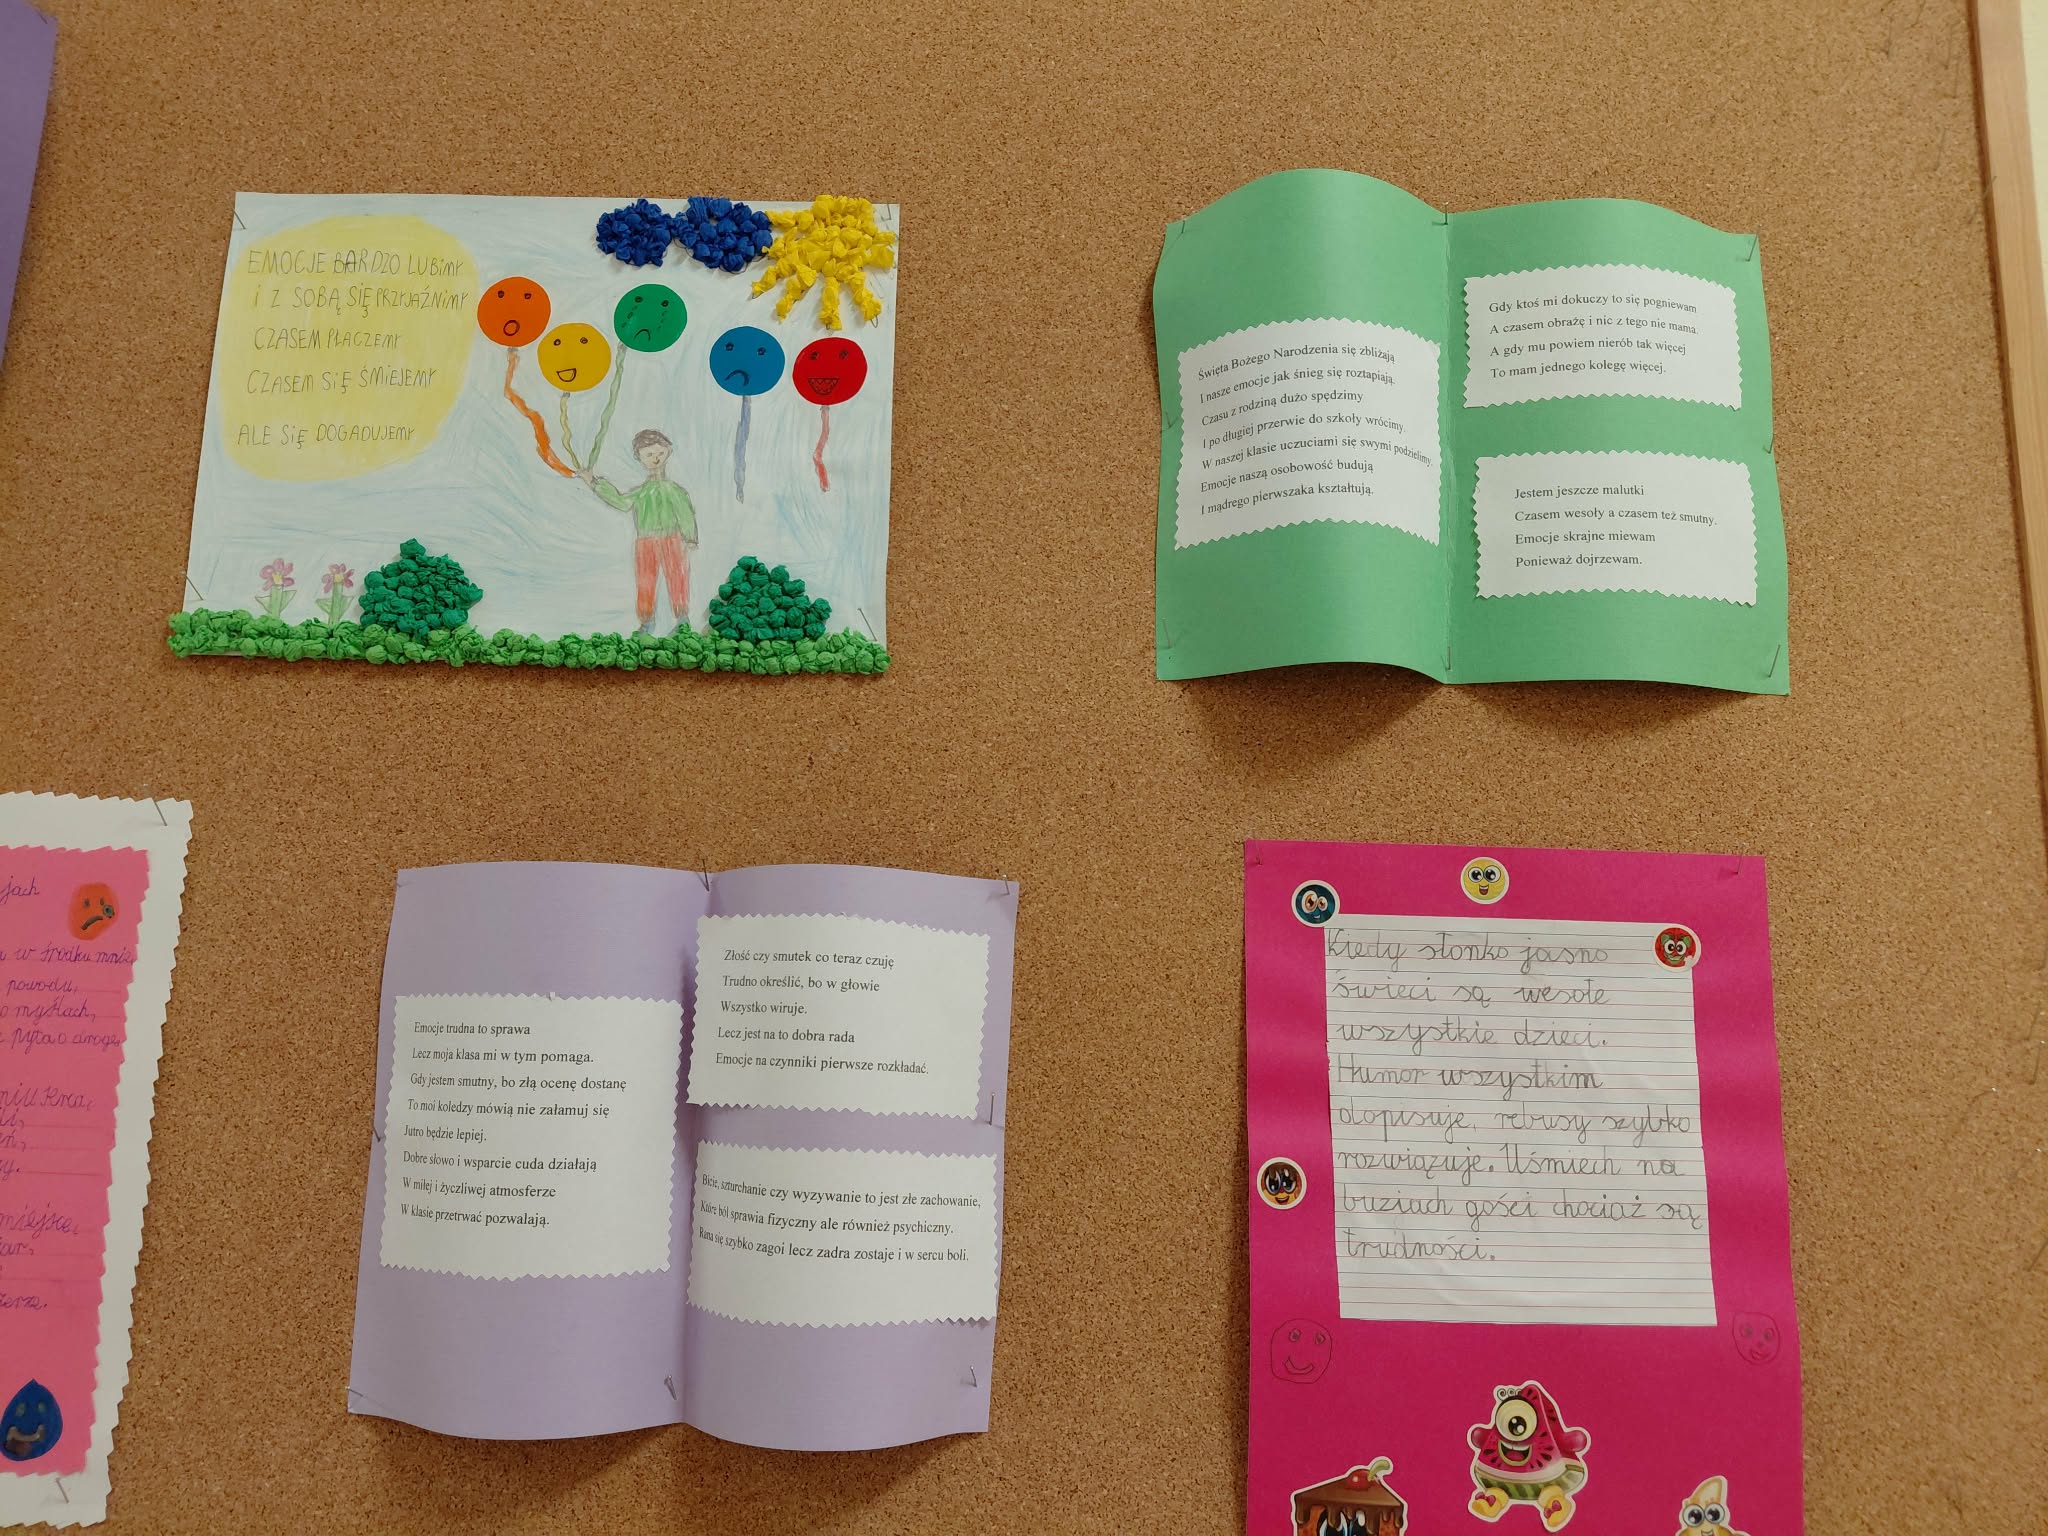 EMOCJE BARDZO LUBIMY
I Z SOBĄ SIĘ PRZYJAŹNIMY
CZASEM PŁACZEMY
CZASEM SIĘ ŚMIEJEMY
ALE SIĘ DOGADUJEMY
Święta Bożego Narodzenia się zbliżają
I nasze emocje jak śnieg się roztapiają.
Czasu z rodziną dużo spędzimy
I po długiej przerwie do szkoły wrócimy.
W naszej klasie uczuciami się swymi podzielimy.
Emocje naszą osobowość budują
I mądrego pierwszaka kształtują.
Gdy ktoś mi dokuczy to się pogniewam
A czasem obrażę i nic z tego nie mama.
A gdy mu powiem nierób tak więcej
To mam jednego kolegę więcej.
Jestem jeszcze malutki
Czasem wesoły a czasem też smutny.
Emocje skrajne miewam
Ponieważ dojrzewam.
jach
w środku mnie,
powodu,
myślach,
pyta o drogę,
Emocje trudna to sprawa
Lecz moja klasa mi w tym pomaga.
Gdy jestem smutny, bo złą ocenę dostanę
To moi koledzy mówią nie załamuj się
Jutro będzie lepiej.
Dobre słowo i wsparcie cuda działają
W miłej i życzliwej atmosferze
W klasie przetrwać pozwalają.
Złość czy smutek co teraz czuję
Trudno określić, bo w głowie
Wszystko wiruje.
Lecz jest na to dobra rada
Emocje na czynniki pierwsze rozkładać.
Bicie, szturchanie czy wyzywanie to jest złe zachowanie,
Które ból sprawia fizyczny ale również psychiczny.
Rana się szybko zagoi lecz zadra zostaje i w sercu boli.
Kiedy słonko jasno
świeci są wesołe
wszystkie dzieci.
Humor wszystkim
dopisuje, rebusy szybko
rozwiązuje. Uśmiech na
buziach gości chociaż są
trudności.